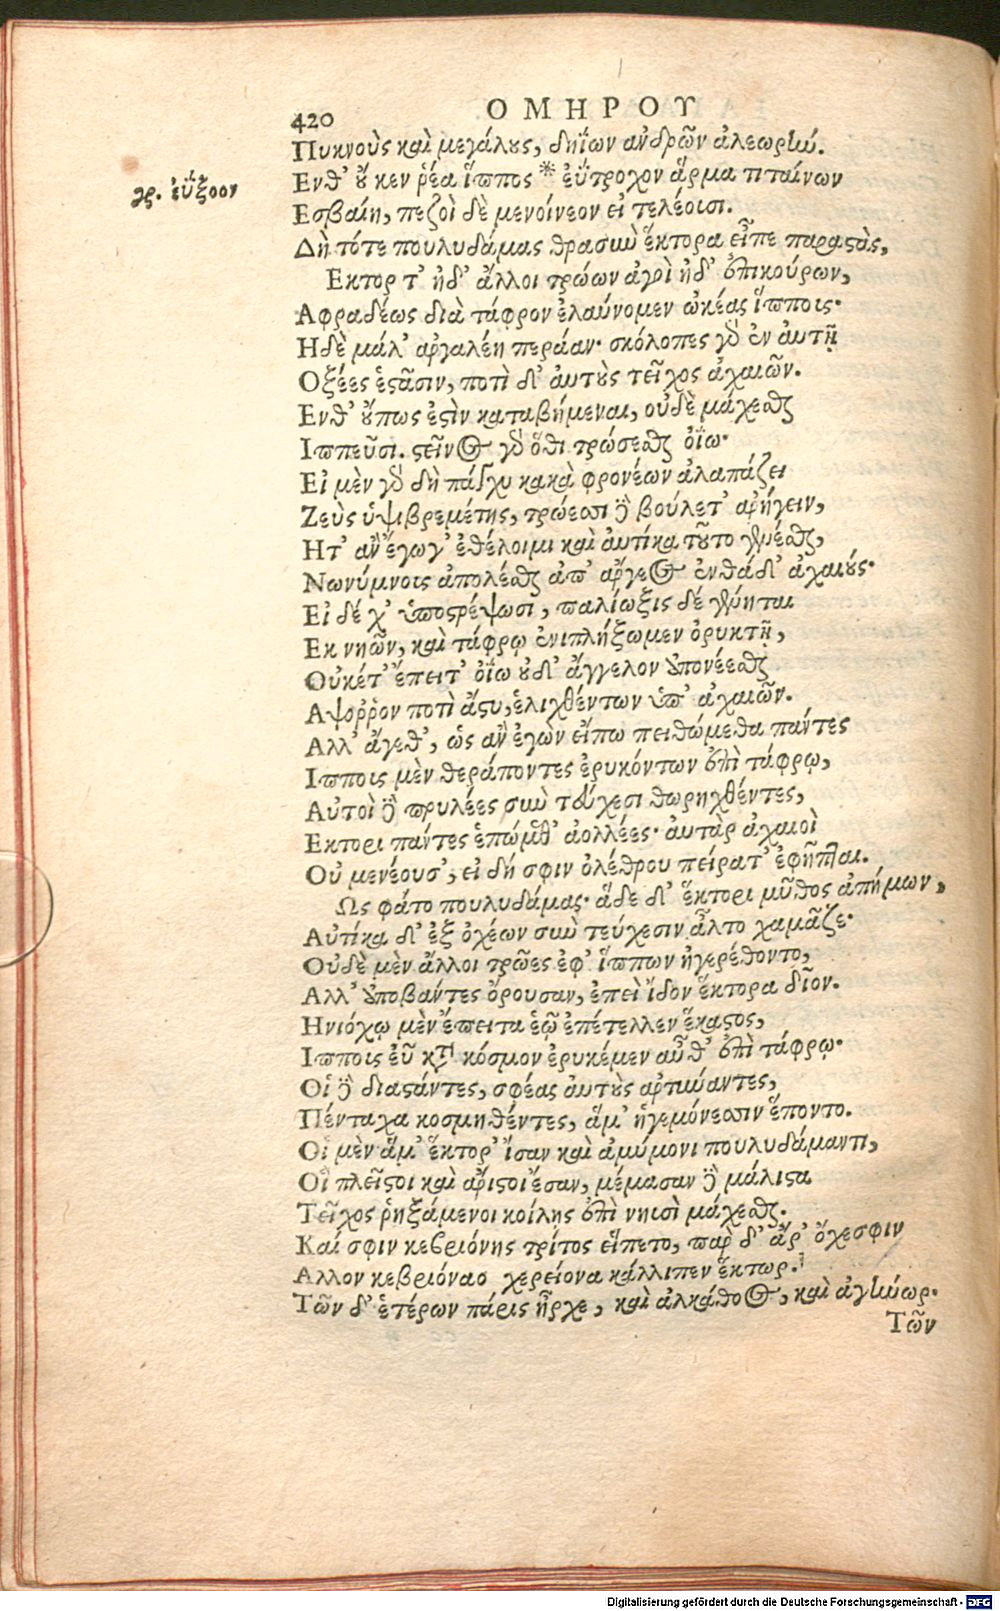 420
ΟΜΗΡΟΥ
Πυκνοὺς καὶ μεγάλους, δηΐων ανδρῶν ἀλεωρὴν.
γρ. ἐΰξοον
Ενθ' οὔ κεν ῥέα ἵππος * ἐΰτροχον ἅρμα τιταίνων
Εσβαίη, πεζοὶ δὲ μενοίνεον εἰ τελέουσι.
Δὴ τότε πουλυδάμας θρασὺν ἕκτορα εἶπε παραστὰς,
Εκτορ τ' ἠδ' ἄλλοι τρώων ἀγοὶ ἠδ' ἐπικούρων,
Αφραδέως διὰ τάφρον ἐλαύνομεν ὠκέας ἵππους·
Ηδὲ μάλ' ἀργαλέη περάαν· σκόλοπες γὰρ ἐν ἀυτῇ
Οξέες ἑστᾶσιν, ποτὶ δ' ἀυτοὺς τεῖχος ἀχαιῶν.
Ενθ' οὔπως ἐστὶν καταβήμεναι, οὐδὲ μάχεσθαι
Ιππεῦσι. στεῖνος γὰρ ὅθι τρώσεσθαι ὀΐω·
Εἰ μὲν γὰρ δὴ πάγχυ κακὰ φρονέων ἀλαπάζει
Ζεὺς ὑψιβρεμέτης, τρώεσσι δὲ βούλετ' ἀρήγειν,
Ητ' ἂν ἔγωγ' ἐθέλοιμι καὶ ἀυτίκα τοῦτο γενέσθαι,
Νωνύμνους ἀπολέσθαι ἀπ' ἄργεος ἐνθάδ' ἀχαιούς·
Εἰ δέ χ' ὑποστρέψωσι, παλίωξις δέ γένηται
Εκ νηῶν, καὶ τάφρῳ ἐνιπλήξωμεν ὀρυκτῇ,
Οὐκέτ' ἔπειτ' ὀΐω οὐδ' ἄγγελον ἀπονέεσθαι
Αψοῤῥον ποτὶ ἄστυ, ἑλιχθέντων ὑπ' ἀχαιῶν.
Αλλ' ἄγεθ', ὡς ἂν ἐγὼν εἴπω πειθώμεθα πάντες
Ιππους μὲν θεράποντες ἐρυκόντων ἐπὶ τάφρῳ,
Αὐτοὶ δὲ πρυλέες σὺν τεύχεσι θωρηχθέντες,
Εκτορι πάντες ἑπώμεθ' ἀολλέες· ἀυτὰρ ἀχαιοὶ
Οὐ μενέουσ', εἰ δή σφιν ὀλέθρου πείρατ' ἐφῆπται.
Ως φάτο πουλυδάμας· ἅδε δ' ἕκτορι μῦθος ἀπήμων,
Αὐτίκα δ' ἐξ ὀχέων σὺν τεύχεσιν ἆλτο χαμᾶζε·
Οὐδὲ μὲν ἄλλοι τρῶες ἐφ' ἵππων ἠγερέθοντο,
Αλλ' ἀποβάντες ὄρουσαν, ἐπεὶ ἴδον ἕκτορα δῖον.
Ηνιόχῳ μὲν ἔπειτα ἑῷ ἐπέτελλεν ἕκαστος,
Ιππους εὖ κατὰ κόσμον ἐρυκέμεν αὖθ' ἐπὶ τάφρῳ·
Οἱ δὲ διαστάντες, σφέας ἀυτοὺς ἀρτύναντες,
Πένταχα κοσμηθέντες, ἅμ' ἡγεμόνεσσιν ἕποντο.
Οἱ μὲν ἅμ' ἕκτορ' ἴσαν καὶ ἀμύμονι πουλυδάμαντι,
Οἳ πλεῖστοι καὶ ἄριστοι ἔσαν, μέμασαν δὲ μάλιστα
Τεῖχος ῥηξάμενοι κοίλῃς ἐπὶ νηυσὶ μάχεσθαι.
Καί σφιν κεβριόνης τρίτος εἵπετο, παρ δ' ἄρ' ὄχεσφιν
Αλλον κεβριόναο χερείονα κάλλιπεν ἕκτωρ.
Τῶν δ' ἑτέρων πάρις ἦρχε, καὶ ἀλκάθοος, καὶ ἀγήνωρ·
Τῶν
Digitalisierung gefördert durch die Deutsche Forschungsgemeinschaft - DFG